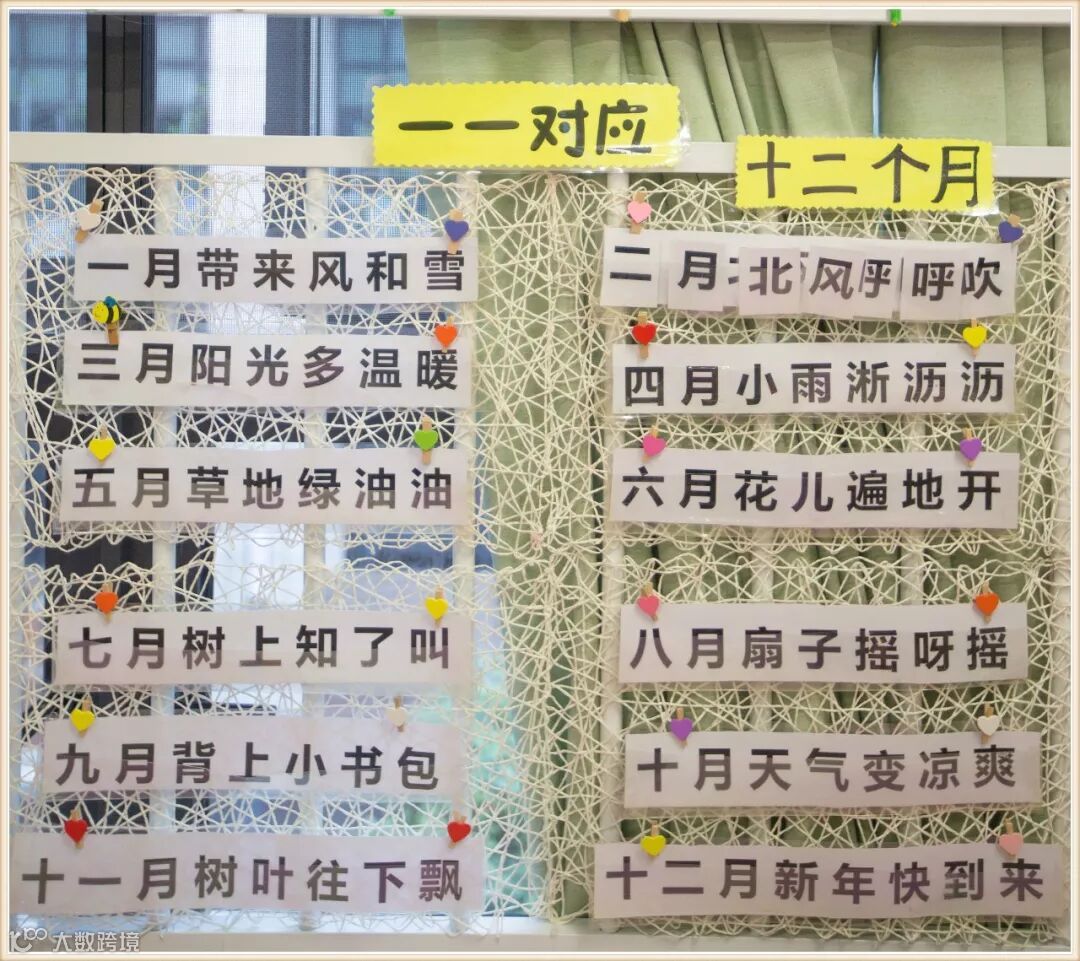 一一对应
十二个月
一月带来风和雪
二月北风呼呼吹
三月阳光多温暖
四月小雨淅沥沥
五月草地绿油油
六月花儿遍地开
七月树上知了叫
八月扇子摇呀摇
九月背上小书包
十月天气变凉爽
十一月树叶往下飘
十二月新年快到来
大数跨境